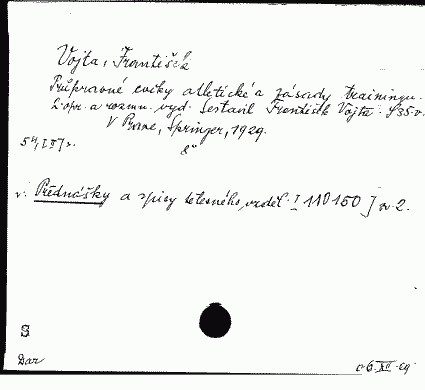 Vojta, František
Průpravné cviky atletické a zásady trainingu.
2. opr. a rozmn. vyd. Sestavil František Vojta.
V Brně, Springer, 1929.
8°
54, [II] s.
v: Přednášky a spisy tělesného vzděl. I 110150] sv. 2.
S
Dar